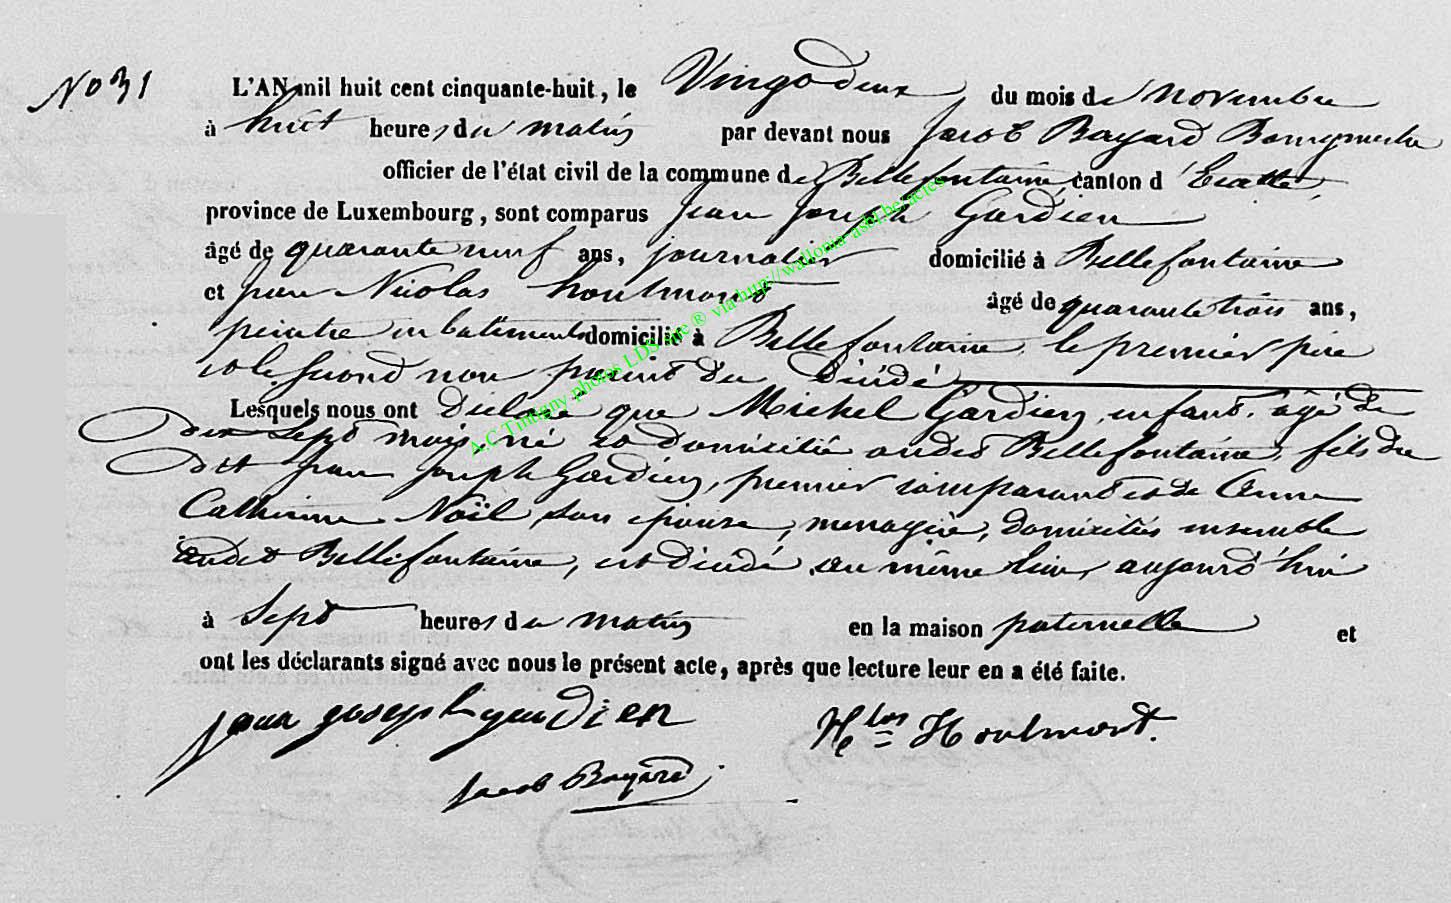 No 31
L'AN mil huit cent cinquante-huit, le Vingt deux du mois de novembre
à huit heures du matin par devant nous Jacob Bayard Bourgmestre
officier de l'état civil de la commune de Bellefontaine canton d'Etalle,
province de Luxembourg, sont comparus Jean Joseph Gardien
âgé de quarante neuf ans, journalier domicilié à Bellefontaine
et Jean Nicolas Houlmont âgé de quarante trois ans,
peintre en batiments domicilié à Bellefontaine, le premier père
et le second non parent du Décédé
Lesquels nous ont Déclaré que Michel Gardien, enfant, âgé de
dix Sept mois, né et domicilié audit Bellefontaine, fils du
dit Jean Joseph Gardien, premier comparant et de Anne
Catherine Noël, son épouse, menagère, domiciliés ensemble
audit Bellefontaine, est Décédé au même lieu, aujourd'hui
à Sept heures du matin en la maison paternelle et
ont les déclarants signé avec nous le présent acte, après que lecture leur en a été faite.
jean joseph gardien Houlmont.
Jacob Bayard
A.C Tintigny photos LDS are ® via http://wallonia-asbl.be/actes